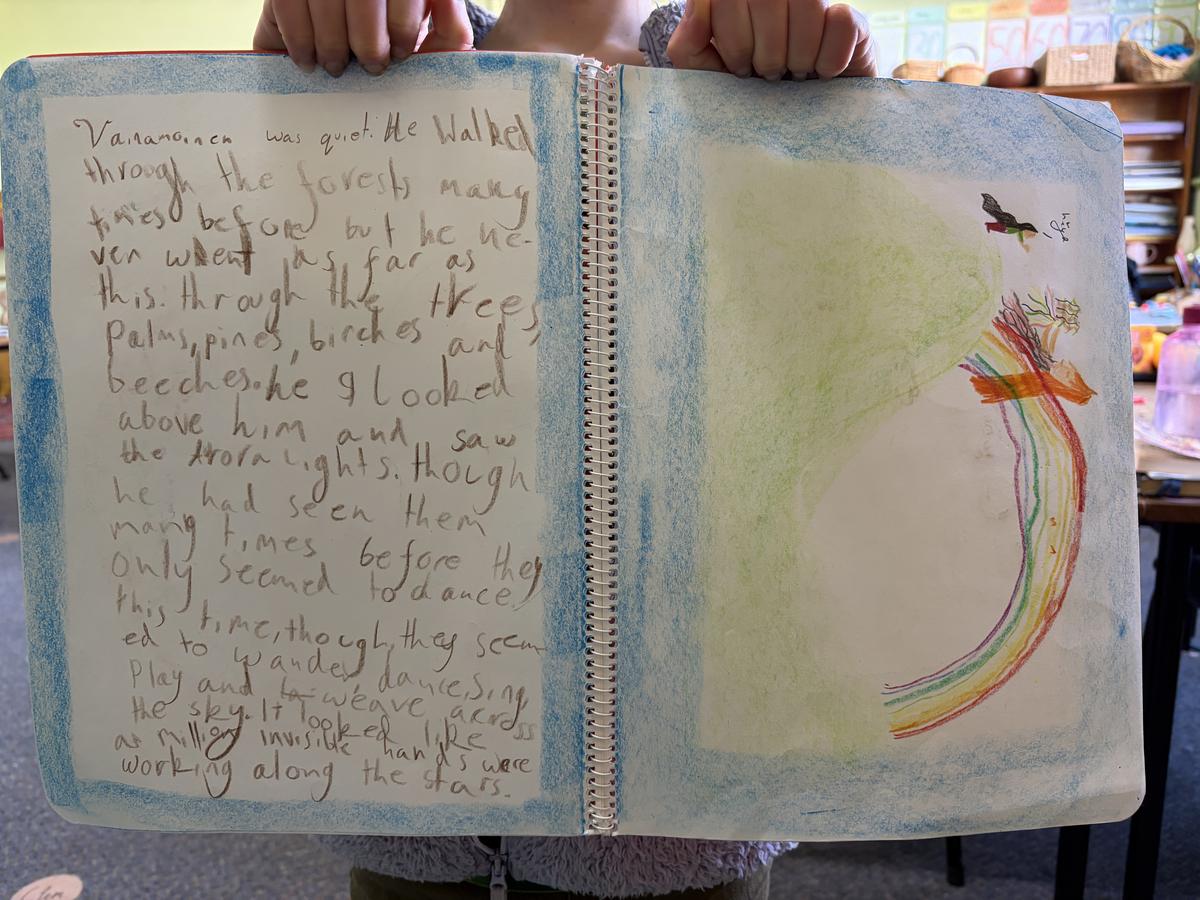 Vainamoinen was quiet. He Walked
through the forests many
times before but he ne-
ver whent as far as
this. through the trees,
Palms, pines, birches and
beeches. he looked
above him and saw
the Arora Lights. though
he had seen them
many times before they
only seemed to dance.
this time, though, they seem
ed to wander, dance, sing
Play and weave across
the sky. It looked like
as million invisible hands were
working along the stars.
hiya,